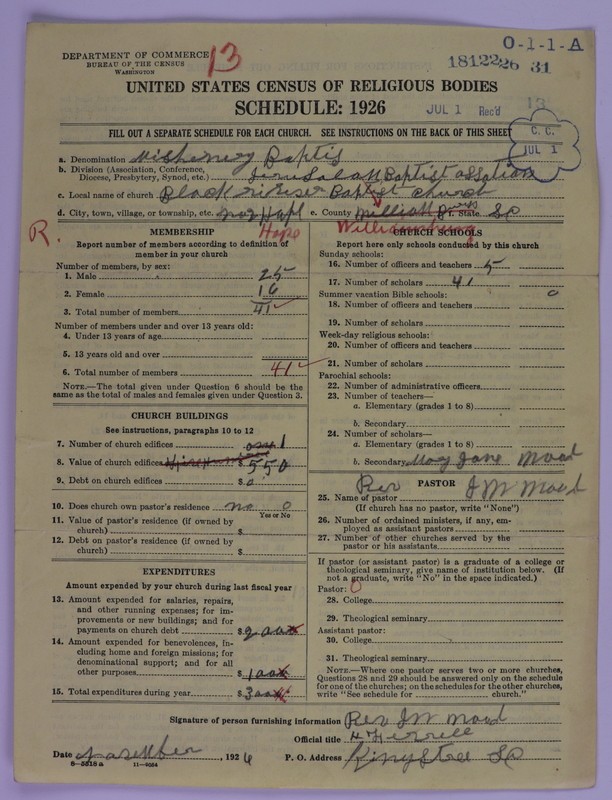 O-1-1-A
DEPARTMENT OF COMMERCE
BUREAU OF THE CENSUS
WASHINGTON
13
1812226 31
UNITED STATES CENSUS OF RELIGIOUS BODIES
SCHEDULE: 1926
JUL 1 Rec'd
FILL OUT A SEPARATE SCHEDULE FOR EACH CHURCH. SEE INSTRUCTIONS ON THE BACK OF THIS SHEET
C. C.
JUL 1
a. Denomination Mishenery Baptis
b. Division (Association, Conference,
Diocese, Presbytery, Synod, etc.) Jerusalah Baptist assation
c. Local name of church Black Baptist church
d. City, town, village, or township, etc. e. County State SC
Hope Williamsburg
R.
MEMBERSHIP
Report number of members according to definition of
member in your church
Number of members, by sex:
1. Male 25
2. Female 16
3. Total number of members 41
Number of members under and over 13 years old:
4. Under 13 years of age
5. 13 years old and over
6. Total number of members 41
NOTE.—The total given under Question 6 should be the
same as the total of males and females given under Question 3.
CHURCH BUILDINGS
See instructions, paragraphs 10 to 12
7. Number of church edifices one 1
8. Value of church edifices $ 550
9. Debt on church edifices $ 0
10. Does church own pastor's residence no 0
Yes or No
11. Value of pastor's residence (if owned by
church) $
12. Debt on pastor's residence (if owned by
church) $
EXPENDITURES
Amount expended by your church during last fiscal year
13. Amount expended for salaries, repairs,
and other running expenses; for im-
provements or new buildings; and for
payments on church debt $ 200
14. Amount expended for benevolences, in-
cluding home and foreign missions; for
denominational support; and for all
other purposes $ 100
15. Total expenditures during year $ 300
CHURCH SCHOOLS
Report here only schools conducted by this church
Sunday schools:
16. Number of officers and teachers 5
17. Number of scholars 41
Summer vacation Bible schools: 0
18. Number of officers and teachers
19. Number of scholars
Week-day religious schools:
20. Number of officers and teachers
21. Number of scholars
Parochial schools:
22. Number of administrative officers
23. Number of teachers—
a. Elementary (grades 1 to 8)
b. Secondary
24. Number of scholars—
a. Elementary (grades 1 to 8)
b. Secondary May Jane Mood
PASTOR
Rev J M Mood
25. Name of pastor
(If church has no pastor, write "None")
26. Number of ordained ministers, if any, em-
ployed as assistant pastors
27. Number of other churches served by the
pastor or his assistants
If pastor (or assistant pastor) is a graduate of a college or
theological seminary, give name of institution below. (If
not a graduate, write "No" in the space indicated.)
Pastor: 0
28. College
29. Theological seminary
Assistant pastor:
30. College
31. Theological seminary
NOTE.—Where one pastor serves two or more churches,
Questions 28 and 29 should be answered only on the schedule
for one of the churches; on the schedules for the other churches,
write "See schedule for church."
Signature of person furnishing information Rev J M Mood
Official title
Date, 1926 P. O. Address Kingstree SC
8—5518a 11—9584